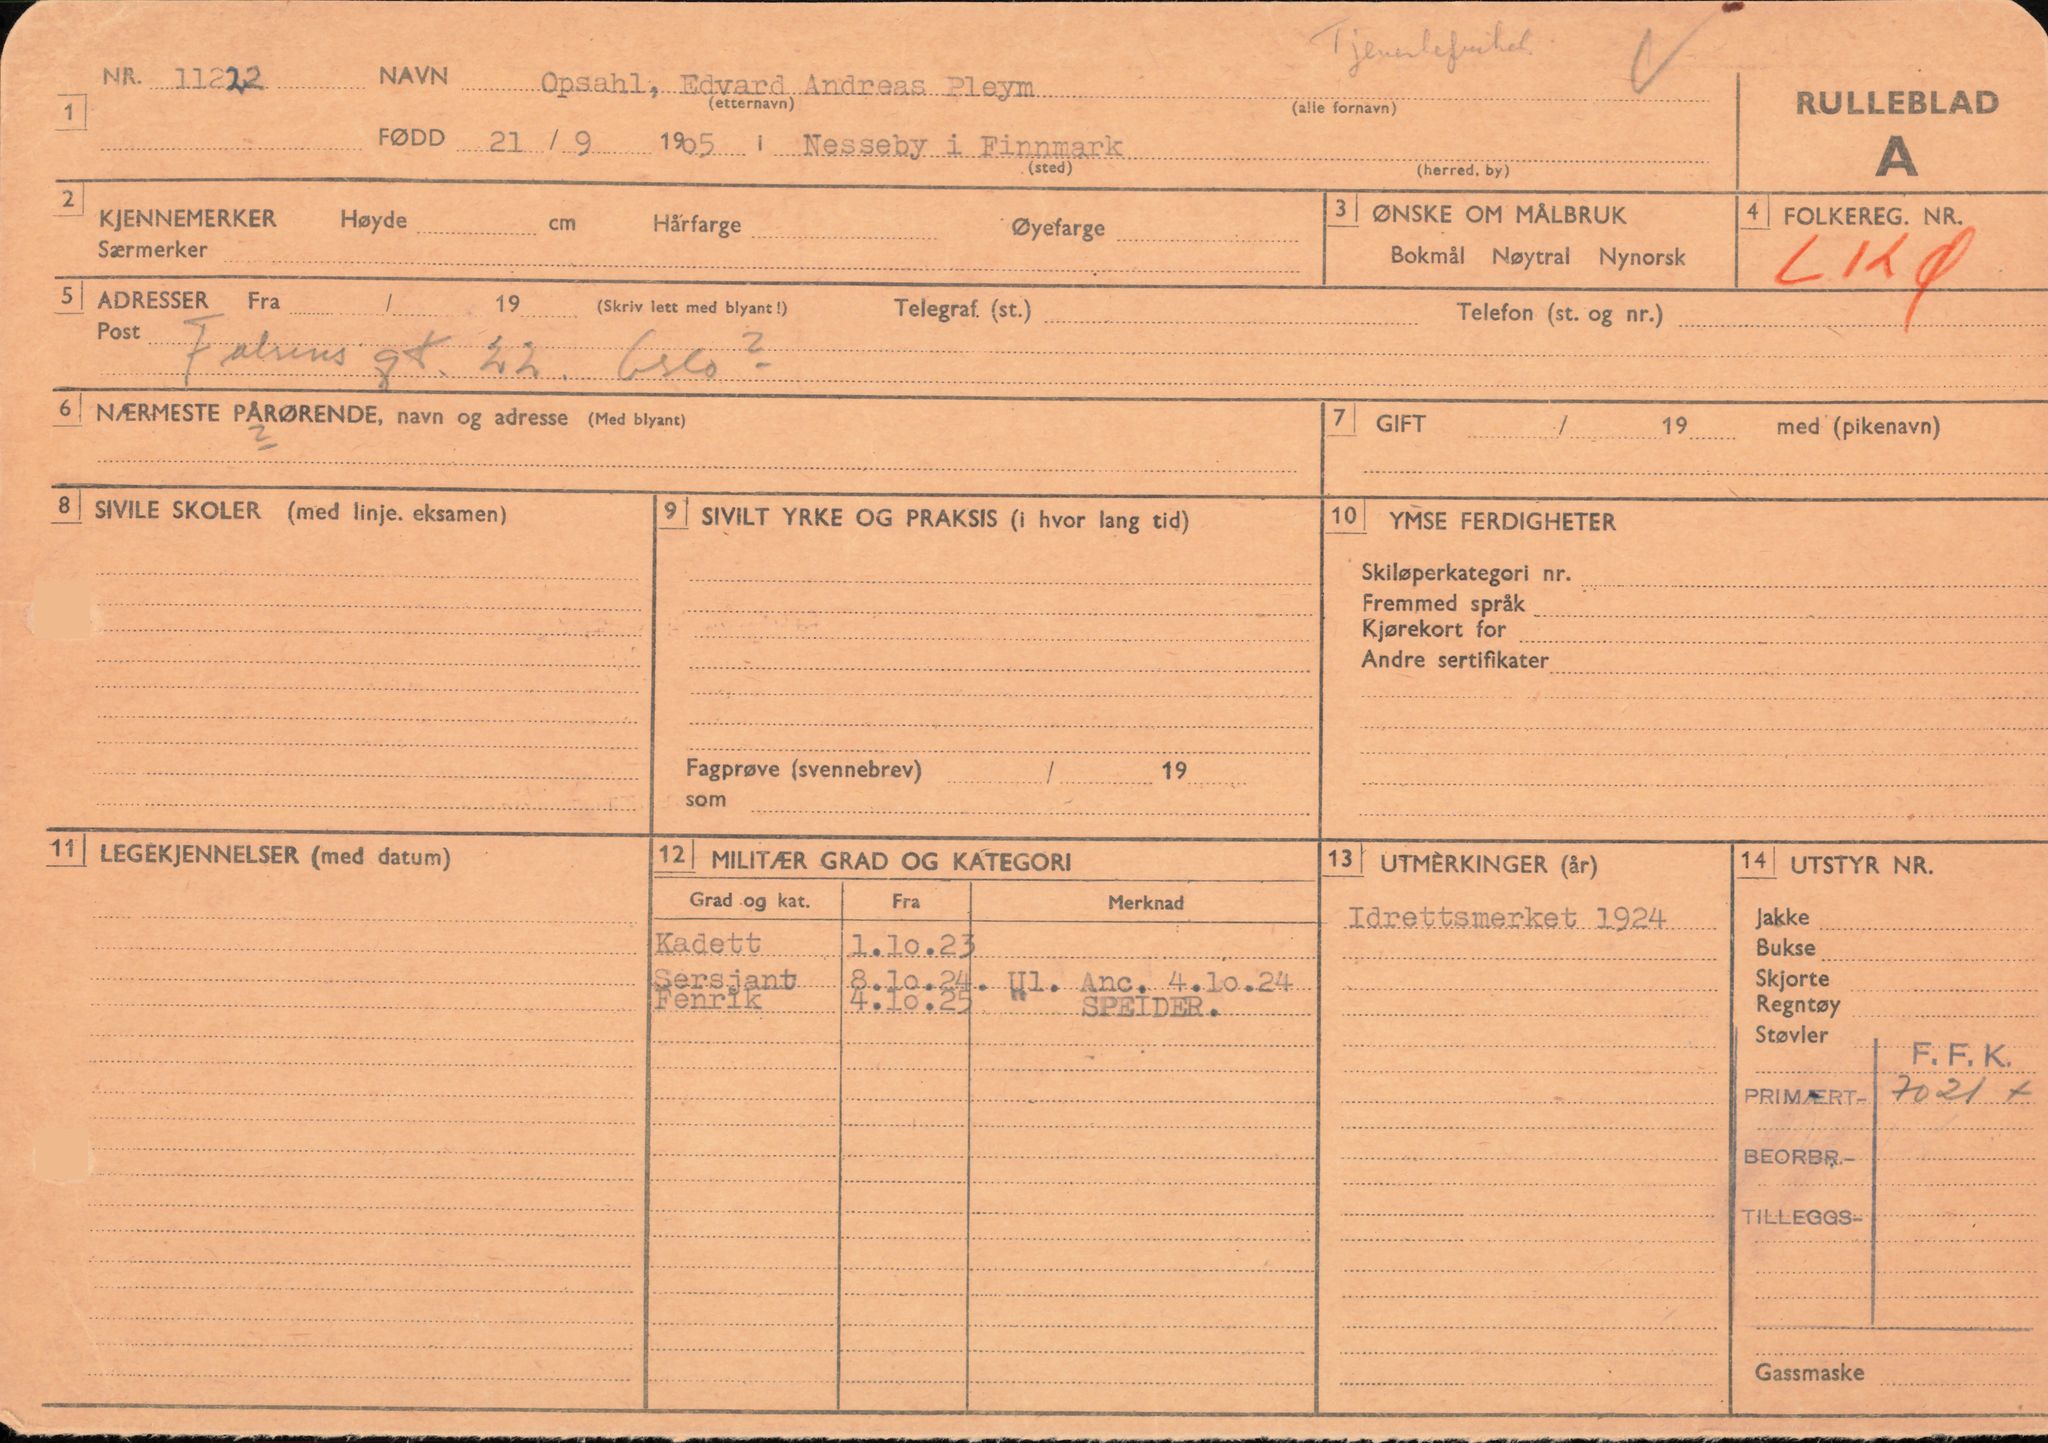 NR. 11222 NAVN Opsahl, Edvard Andreas Pleym
(etternavn) (alle fornavn)
1
FØDD 21 / 9 1905 i Nesseby i Finnmark
(sted) (herred, by)
RULLEBLAD
A
2 KJENNEMERKER Høyde cm Hårfarge Øyefarge
Særmerker
3 ØNSKE OM MÅLBRUK
Bokmål Nøytral Nynorsk
4 FOLKEREG. NR.
LKØ
5 ADRESSER Fra / 19 (Skriv lett med blyant!) Telegraf. (st.) Telefon (st. og nr.)
Post
gt. 22. Oslo?
6 NÆRMESTE PÅRØRENDE, navn og adresse (Med blyant)
?
7 GIFT / 19 med (pikenavn)
8 SIVILE SKOLER (med linje. eksamen)
9 SIVILT YRKE OG PRAKSIS (i hvor lang tid)
Fagprøve (svennebrev) / 19
som
10 YMSE FERDIGHETER
Skiløperkategori nr.
Fremmed språk
Kjørekort for
Andre sertifikater
11 LEGEKJENNELSER (med datum)
12 MILITÆR GRAD OG KATEGORI
Grad og kat. Fra Merknad
Kadett 1.10.23
Sersjant 8.10.24. Ul. Anc. 4.10.24
Fenrik 4.10.25 " SPEIDER.
13 UTMERKINGER (år)
Idrettsmerket 1924
14 UTSTYR NR.
Jakke
Bukse
Skjorte
Regntøy
Støvler
F. F. K.
PRIMÆRT- 7021 +
BEORBR.-
TILLEGGS-
Gassmaske